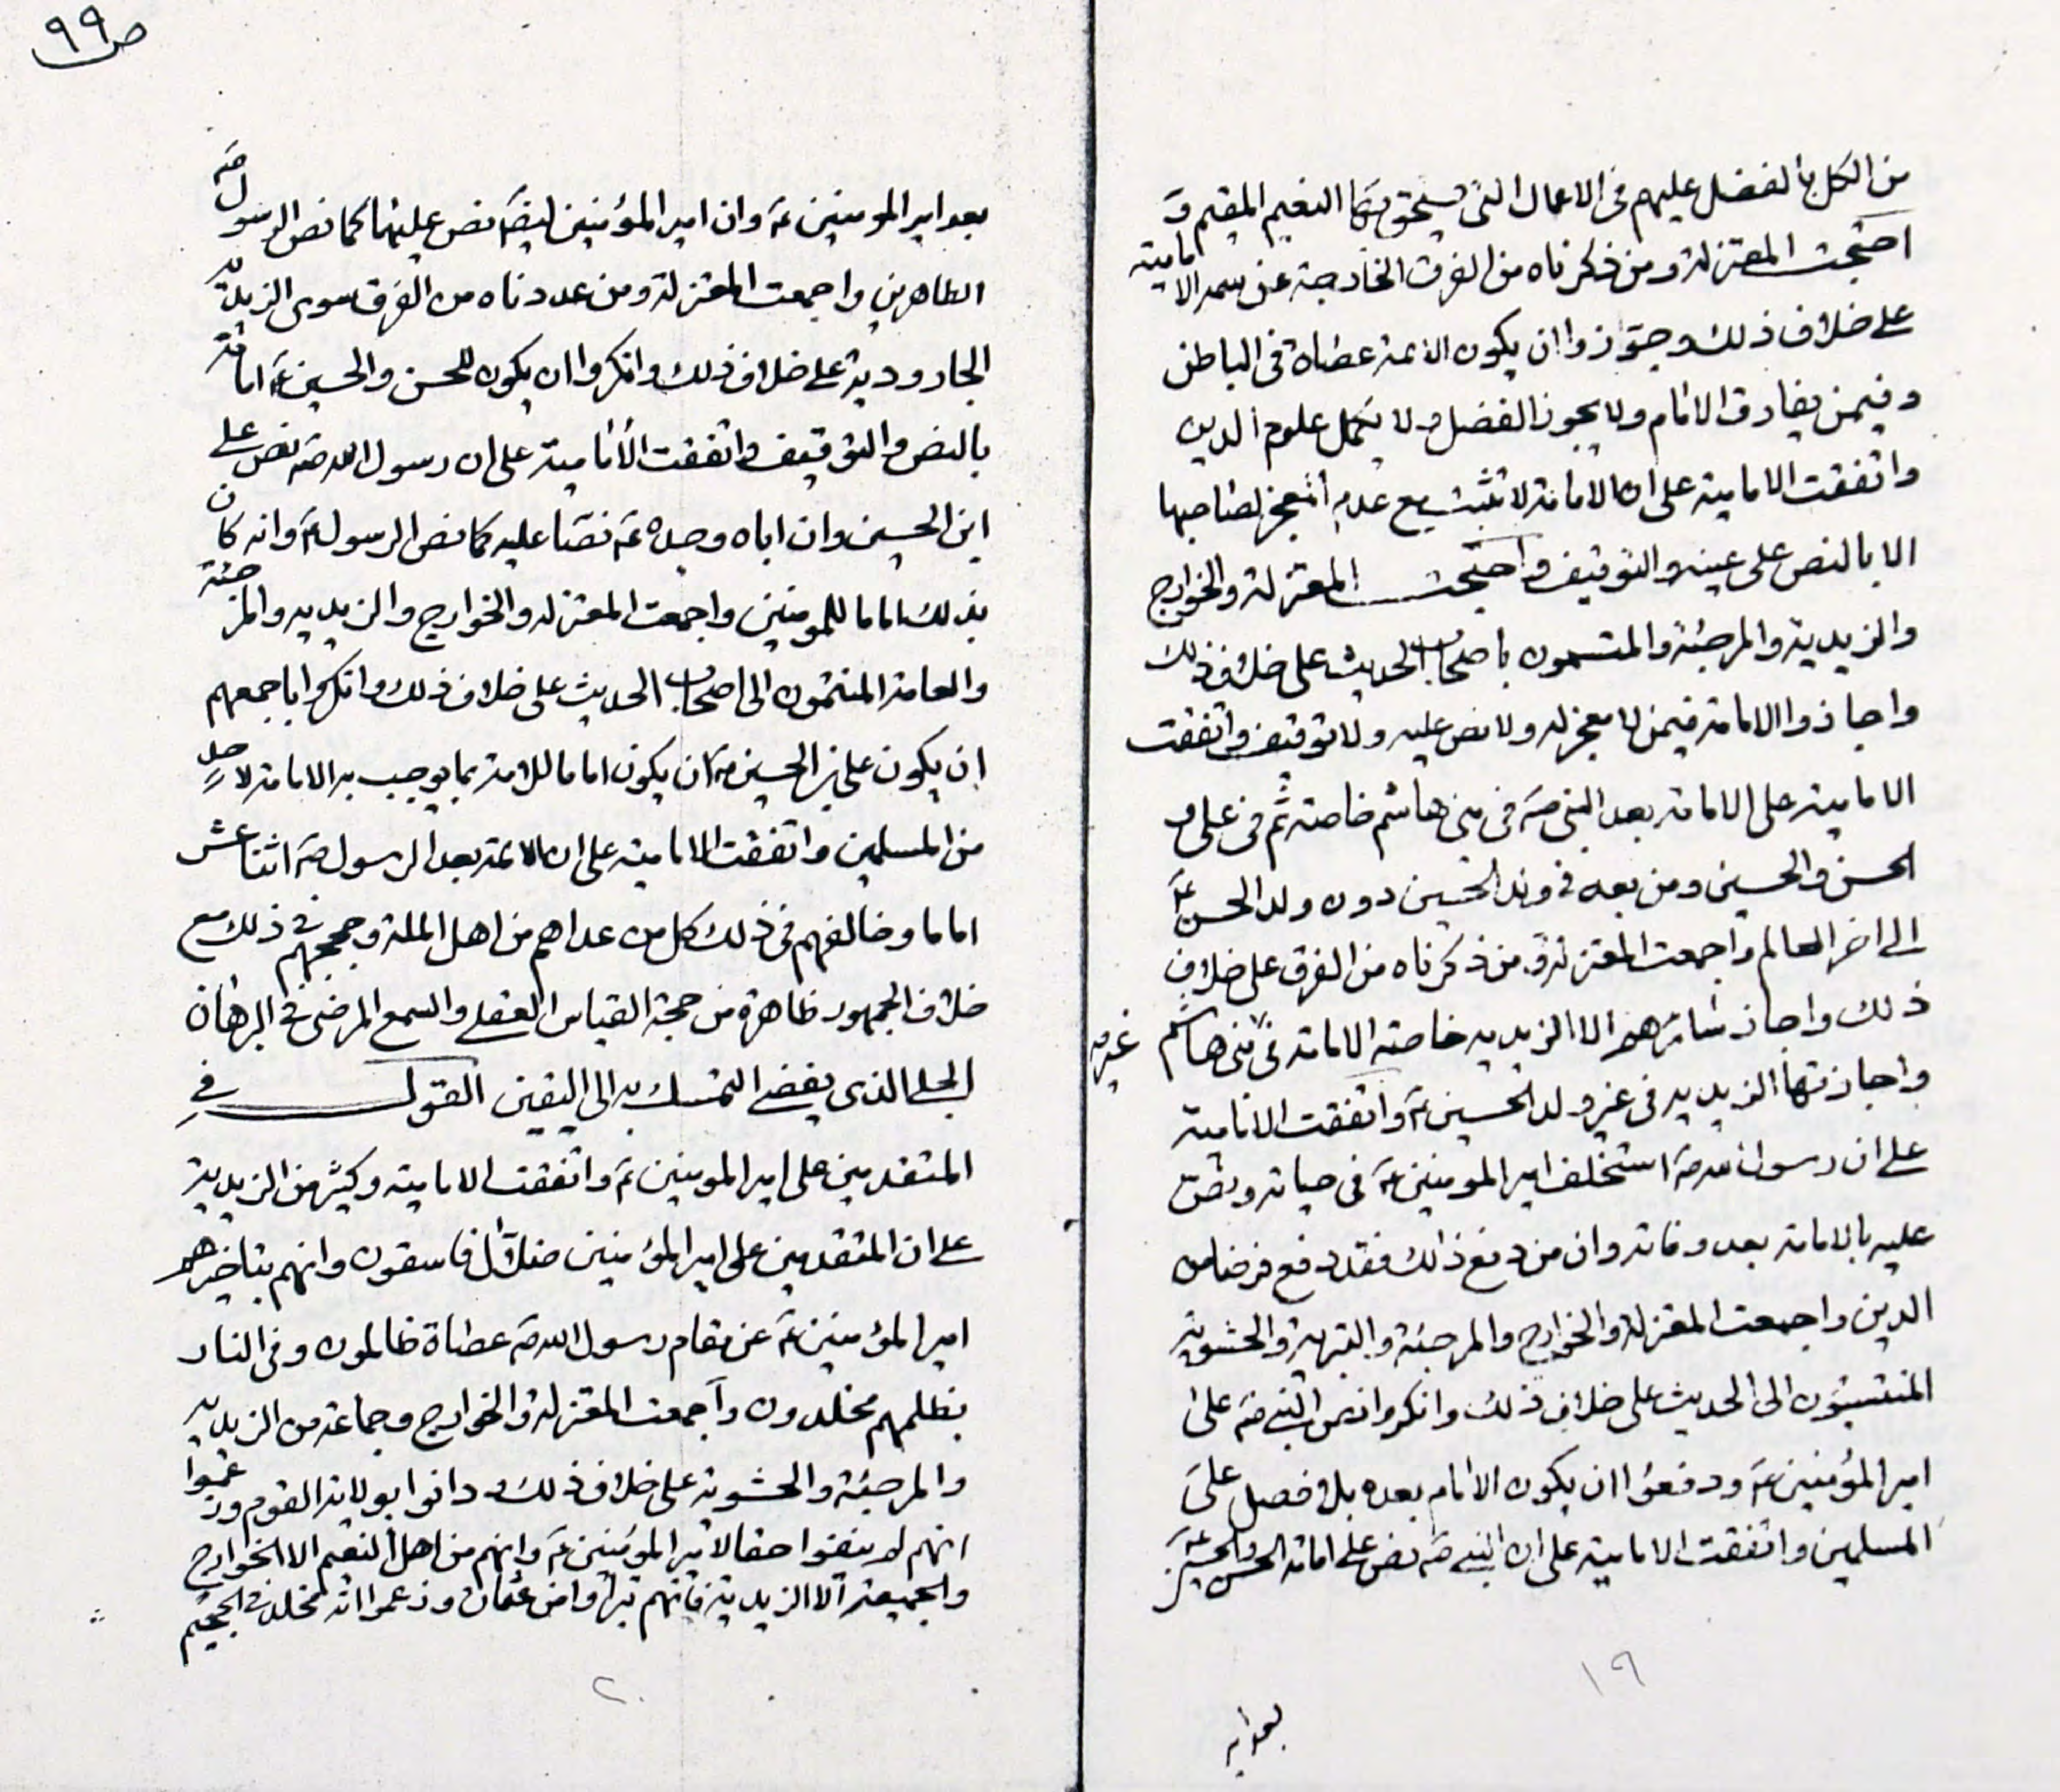 من الكل بالفضل عليهم فى الاعمال التى يستحق بها النعيم المقيم و
احتجت المعتزلة ومن ذكرناه من الفرق الخارجة عن سمة الامامية
على خلاف ذلك وجوزوا ان يكون الائمة عصاة فى الباطن
وفيمن يقارف الاثام ولا يحوز الفضل ولا يكمل علوم الدين
واتفقت الامامية على ان الامامة لا تثبت مع عدم المعجز لصاحبها
الا بالنص على عينه والتوقيف واحتجت المعتزلة والخوارج
والزيدية والمرجئة والمتسمون باصحاب الحديث على خلاف ذلك
واجازوا الامامة فيمن لا معجز له ولا نص عليه ولا توقيف واتفقت
الامامية على الامامة بعد النبى صه فى بنى هاشم خاصة ثم فى على و
الحسن والحسين ومن بعد فى ولد الحسين دون ولد الحسن عه
الى اخر العالم واجمعت المعتزلة ومن ذكرناه من الفرق على خلاف
ذلك واجاز سائرهم الا الزيدية خاصة الامامة فى بنى هاشم
غير
واجازتها الزيدية فى غير ولد الحسين عه واتفقت الامامية
على ان رسول الله صه استخلف امير المومنين عه فى حياته ونص
عليه بالامامة بعد وفاته وان من دفع ذلك فقد دفع فرضا من
الدين واجمعت المعتزلة والخوارج والمرجئة والبترية والحشوية
المنتسبون الى الحديث على خلاف ذلك وانكروا نص النبى صه على
امير المؤمنين عه ودفعوا ان يكون الامام بعده بلا فصل على
المسلمين واتفقت الامامية على ان النبى صه نص على امامة الحسن والحسين
١٩
بعد امير
ص ٩٩
بعد امير المومنين عه وان امير المؤمنين ايضه نص عليهما كما نص الرسول صه
الطاهرين واجمعت المعتزلة ومن عددناه من الفرق سوى الزيدية
الجارودية على خلاف ذلك وانكروا ان يكون للحسن والحسين عه امامة
بالنص والتوقيف واتفقت الامامية على ان رسول الله صه نص على
ابن الحسين وان اباه وجده عه نصا عليه كما نص الرسول عه وانه كان
بذلك اماما للمومنين واجمعت المعتزله والخوارج والزيديه والمرجئة
والعامة المنتمون الى اصحاب الحديث على خلاف ذلك وانكروا باجمعهم
ان يكون على بن الحسين عه ان يكون اماما للامة بما يوجب به الامامة لاحد
من المسلمين واتفقت الامامية على ان الائمة بعد الرسول صه اثنا عشر
اماما وخالفهم فى ذلك كل من عداهم من اهل الملة وحججهم فى ذلك مع
خلاف الجمهور ظاهرة من حجة القياس العقلى والسمع المرضى فى البرهان
الجلى الذى يفضى التمسك به الى اليقين القول فى
المتقدمين على امير المومنين عه واتفقت الامامية وكثير من الزيدية
على ان المتقدمين على امير المؤمنين ضلال فاسقون وانهم بتاخيرهم
امير المؤمنين عه عن مقام رسول الله صه عصاة ظالمون وفى النار
بظلمهم مخلدون واجمعت المعتزلة والخوارج وجماعة من الزيدية
والمرجئة والحشوية على خلاف ذلك ودانوا بولاية القوم وزعموا
انهم لم يدفعوا حقا لامير المومنين عه وانهم من اهل النعيم الا الخوارج
والجميعة الا الزيدية فانهم تبراوا من عثمان وزعموا انه مخلد فى الجحيم
٢٠